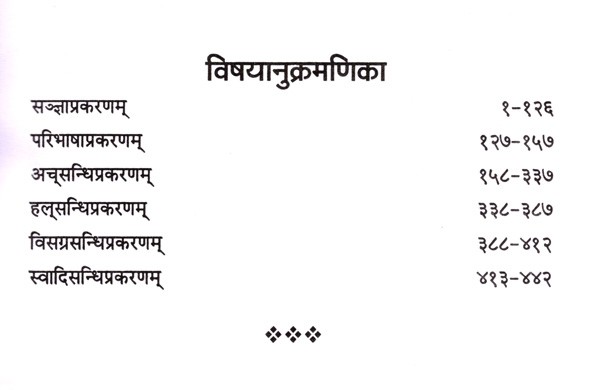 विषयानुक्रमणिका
सञ्ज्ञाप्रकरणम् १-१२६
परिभाषाप्रकरणम् १२७-१५७
अच्‌सन्धिप्रकरणम् १५८-३३७
हल्‌सन्धिप्रकरणम् ३३८-३८७
विसग्रसन्धिप्रकरणम् ३८८-४१२
स्वादिसन्धिप्रकरणम् ४१३-४४२